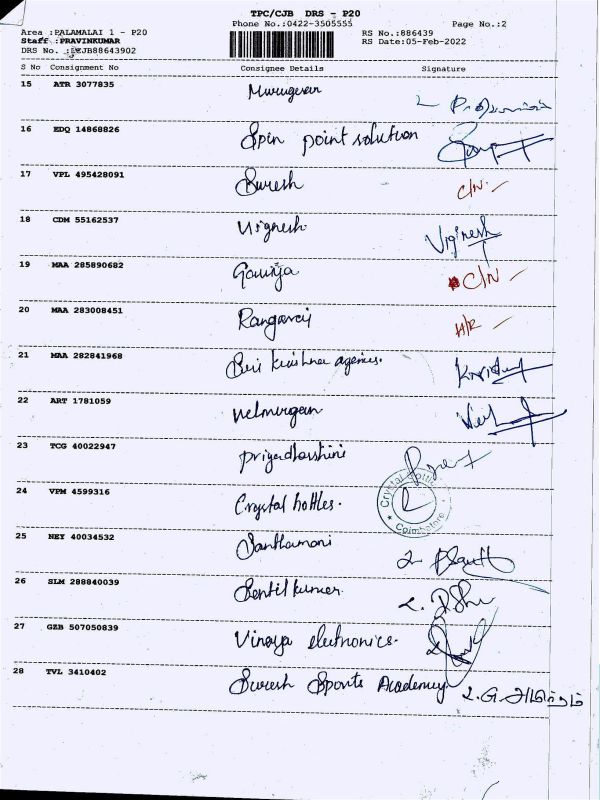 TPC/CJB DRS - P20
Phone No.:0422-3505555 Page No.:2
Area :PALAMALAI 1 - P20 RS No.:886439
Staff :PRAVINKUMAR RS Date:05-Feb-2022
DRS No. :CJB88643902
S No Consignment No Consignee Details Signature
15 ATR 3077835 Murugesan
16 EDQ 14868826 Spin point solution
17 VPL 495428091 Suresh C/N.
18 CDM 55162537 Vignesh Vignesh
19 MAA 285890682 Gowriya C/N
20 MAA 283008451 Rangaraj H/R
21 MAA 282841968 Sri Krishna agencies.
22 ART 1781059 Velmurugan
23 TCG 40022947 priyadharshini
24 VPM 4599316 Crystal bottles. Crystal Bottles Coimbatore
25 NEY 40034532 Santhamani
26 SLM 288840039 Sentil kumar.
27 GZB 507050839 Vinaya electronics.
28 TVL 3410402 Suresh Sports Academy